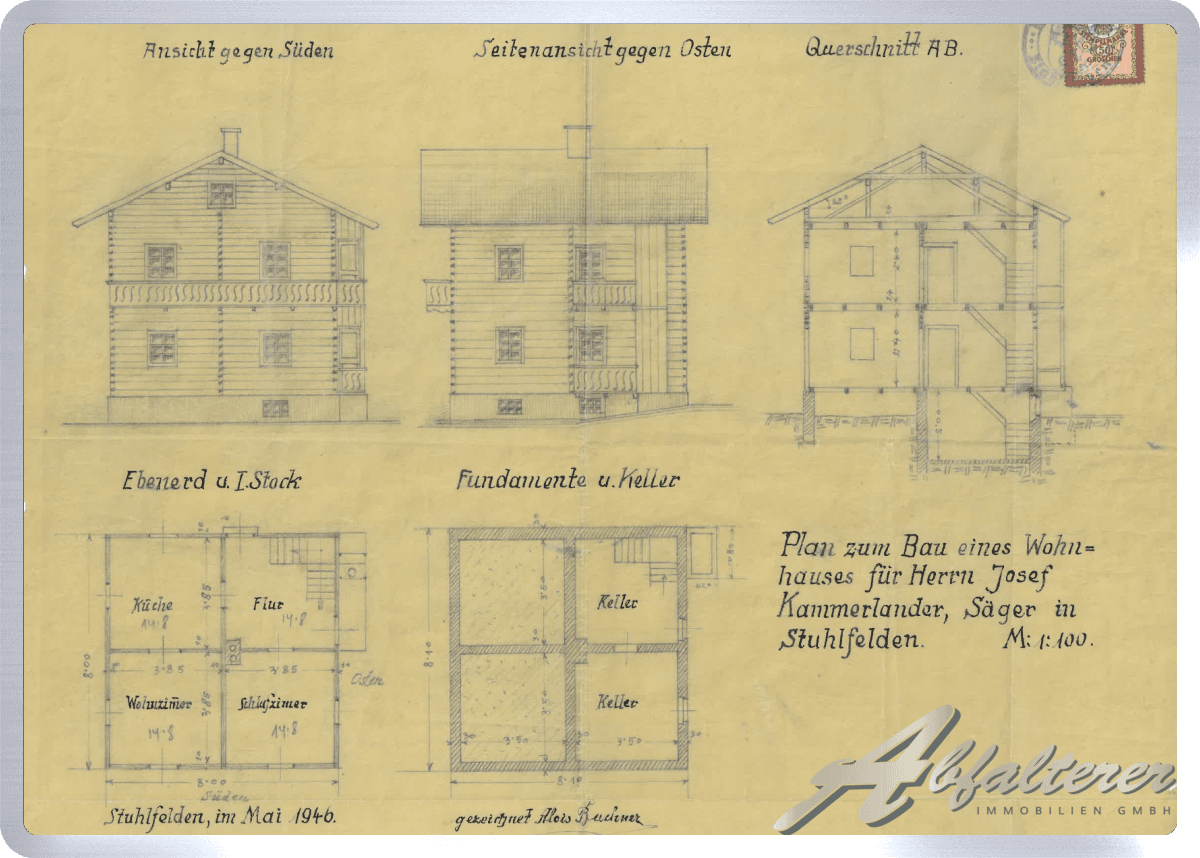 Ansicht gegen Süden
Seitenansicht gegen Osten
Querschnitt AB.
50
GROSCHEN
2·40
2·40
Ebenerd u. I. Stock
Fundamente u. Keller
Küche
14·8
3·85
Flur
14·8
8·00
3·85
3·85
Osten
Wohnzimer
14·8
3·85
Schlafzimer
14·8
8·00
Süden
Keller
3·50
8·10
Keller
3·50
3·50
3·50
8·10
Plan zum Bau eines Wohn=
hauses für Herrn Josef
Kammerlander, Säger in
Stuhlfelden. M: 1:100.
Stuhlfelden, im Mai 1946.
gezeichnet Alois Buchner
Abfalterer
IMMOBILIEN GMBH